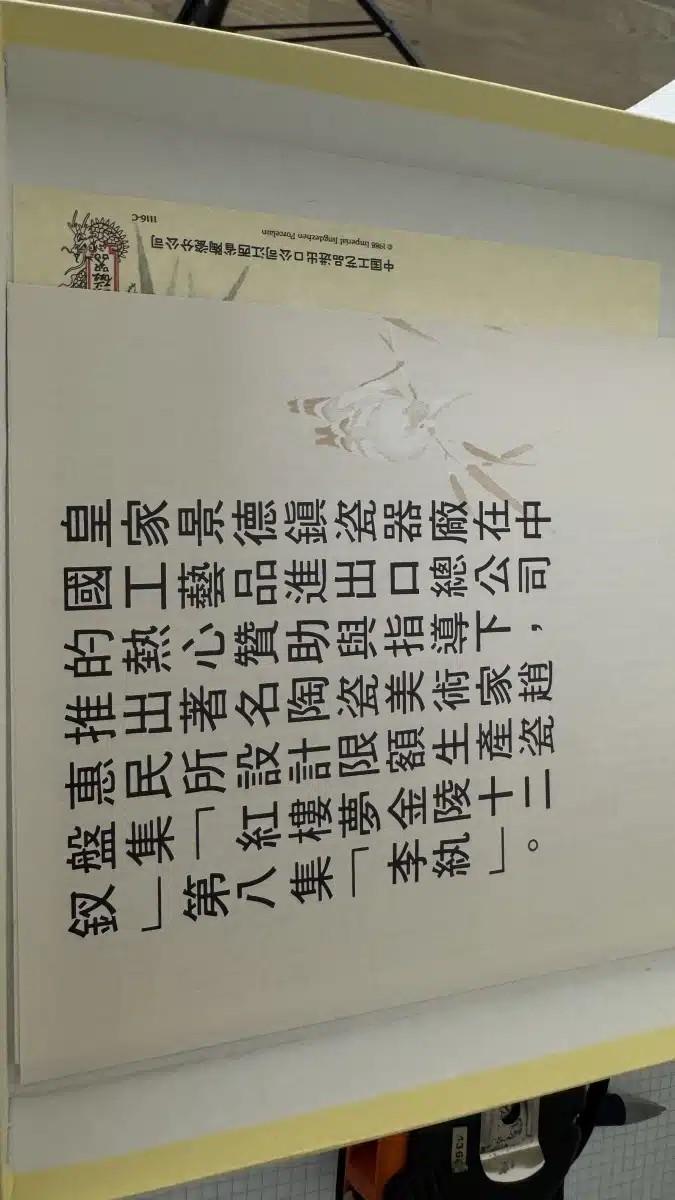 皇家景德鎮瓷器廠在中
國工藝品進出口總公司
的熱心贊助與指導下，
推出著名陶瓷美術家趙
惠民所設計限額生產瓷
盤集「紅樓夢金陵十二
釵」第八集「李紈」。
中国工艺品进出口公司江西省陶瓷分公司
© 1988 Imperial Jingdezhen Porcelain
1116-C